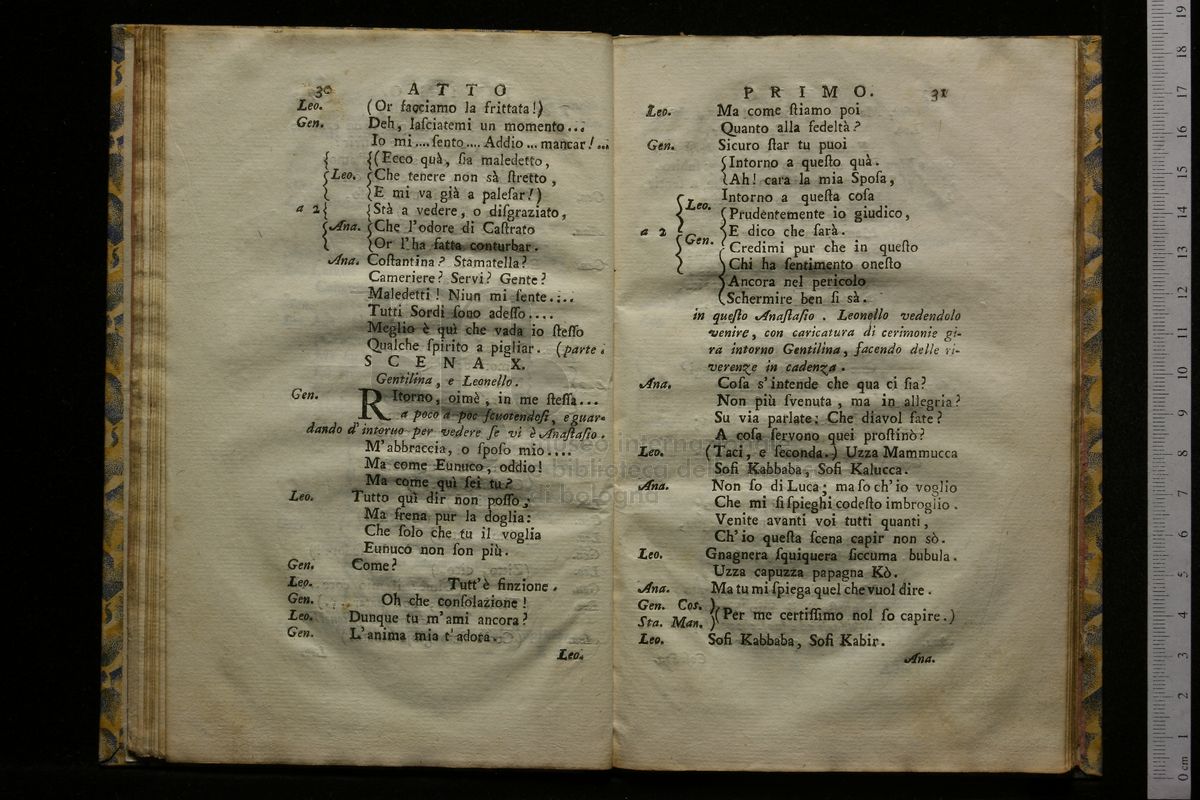 30 ATTO
Leo. (Or facciamo la frittata!)
Gen. Deh, laſciatemi un momento...
Io mi.... ſento.... Addio... mancar!...
{(Ecco quà, ſia maledetto,
Leo. {Che tenere non sà ſtretto,
{E mi va già a paleſar!)
a 2 {Stà a vedere, o diſgraziato,
Ana. {Che l'odore di Caſtrato
{Or l'ha fatta conturbar.
Ana. Coſtantina? Stamatella?
Cameriere? Servi? Gente?
Maledetti! Niun mi ſente....
Tutti Sordi ſono adeſſo....
Meglio è quì che vada io ſteſſo
Qualche ſpirito a pigliar. (parte.
SCENA X.
Gentilina, e Leonello.
Gen. RItorno, oimè, in me ſteſſa...
a poco a poc ſcuotendoſi, e guar-
dando d'intoruo per vedere ſe vi è Anaſtaſio.
M'abbraccia, o ſpoſo mio....
Ma come Eunuco, oddio!
Ma come quì ſei tu?
Leo. Tutto quì dir non poſſo;
Ma frena pur la doglia:
Che ſolo che tu il voglia
Eunuco non ſon più.
Gen. Come?
Leo. Tutt'è finzione.
Gen. Oh che conſolazione!
Leo. Dunque tu m'ami ancora?
Gen. L'anima mia t'adora.
Leo.
PRIMO. 31
Leo. Ma come ſtiamo poi
Quanto alla fedeltà?
Gen. Sicuro ſtar tu puoi
{Intorno a queſto quà.
{Ah! cara la mia Spoſa,
Intorno a queſta coſa
Leo. {Prudentemente io giudico,
a 2 {E dico che ſarà.
Gen. {Credimi pur che in queſto
{Chi ha ſentimento oneſto
{Ancora nel pericolo
{Schermire ben ſi sà.
in queſto Anaſtaſio. Leonello vedendolo
venire, con caricatura di cerimonie gi-
ra intorno Gentilina, facendo delle ri-
verenze in cadenza.
Ana. Coſa s'intende che qua ci ſia?
Non più ſvenuta, ma in allegria?
Su via parlate: Che diavol fate?
A coſa ſervono quei proſtinò?
Leo. (Taci, e ſeconda.) Uzza Mammucca
Sofi Kabbaba, Sofi Kalucca.
Ana. Non ſo di Luca; ma ſo ch'io voglio
Che mi ſi ſpieghi codeſto imbroglio.
Venite avanti voi tutti quanti,
Ch'io queſta ſcena capir non sò.
Leo. Gnagnera ſquiquera ſiccuma bubula.
Uzza capuzza papagna Kò.
Ana. Ma tu mi ſpiega quel che vuol dire.
Gen. Cos. )
Sta. Man. )(Per me certiſſimo nol ſo capire.)
Leo. Sofi Kabbaba, Sofi Kabir.
Ana.
museo internazionale
e biblioteca della
di bologna